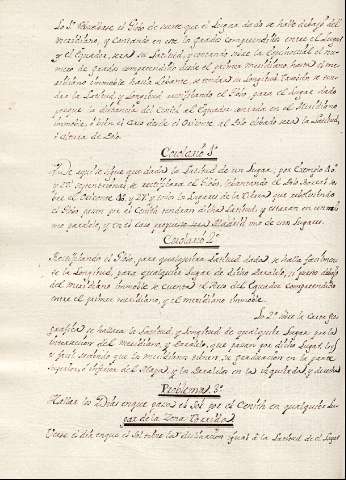 Lo 1º Muebase el Globo de suerte que el Lugar dado se halle debajo del
Meridiano, y contando en este los grados comprendidos entre el Lugar
y el Equador, sera su Latitud, y contando sobre la Equinoccial el nu-
mero de grados comprendidos desde el primer meridiano hasta el me-
ridiano immoble hacia Levante, se tendra su Longitud. Tambien se ten-
dra la Latitud y Longitud rectificando el Globo, para el Lugar dado
porque la distancia del Cenit al Equador contada en el Meridiano
immoble, ò bien el Arco desde el Orizonte al Polo elebado sera la Latitud,
ò altura de Polo.
Corolario 1º
De aqui se sigue que dada la Latitud de un Lugar, por Exemplo 40º
y 25' septentrionales se rectificara el Globo, elebando el Polo Boreal so-
bre el Orizonte 40, y 25' y todos los Lugares de la Tierra que rebolviendo
el Globo pasen por el Cenith tendran dicha Latitud, y estaran en un mis-
mo paralelo, y en el caso propuesto sera Madrid uno de esos Lugares.
Corolario 2º
Rectificando el Globo, para qualquiera Latitud dada se halla facilmen-
te la Longitud, para qualquier Lugar de dicho Paralelo, si puesto debajo
del meridiano immoble se cuenta el Arco del Equador comprendido
entre el primer meridiano, y el meridiano immoble.
Lo 2º sobre la Carta Geo-
grafica se hallara la Latitud, y Longitud de qualquier Lugar por la
interseccion del meridiano y Paralelo, que pasan por dicho Lugar
qual siendo que los meridianos tienen su graduacion en la parte
superior, è inferior del Mapa, y los Paralelos en la izquierda, y derecha
Problema 3º
Hallar los Dias en que pasa el Sol por el Cenith en qualquier Lu-
gar de la Zona Torrida
Vease el dia en que el Sol tiene la declinacion igual à la Latitud de el Lugar